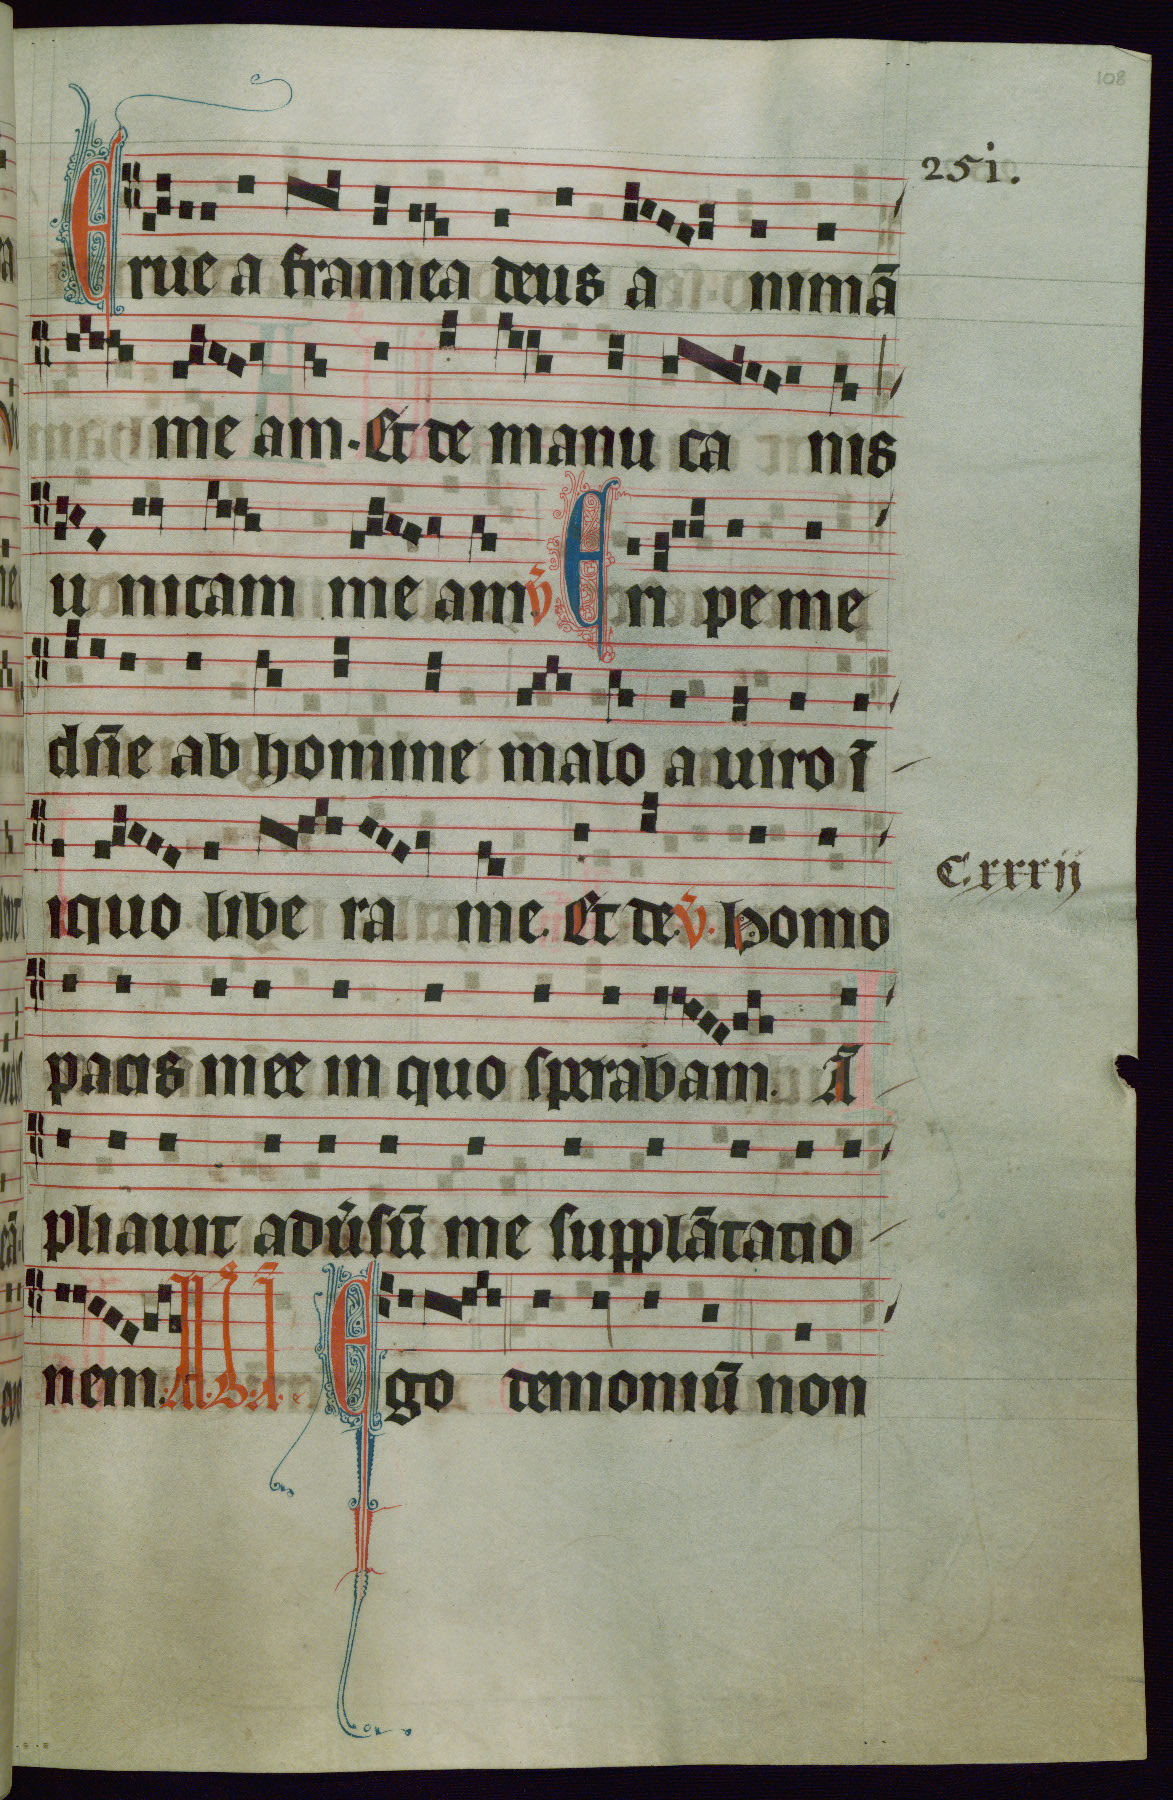 108
25i.
Erue a framea deus a nimā
me am. Et de manu ca nis
u nicam me am v̄ Eri pe me
dn̄e ab homine malo a uiro ī
iquo libe ra me. Et de. v̄. Homo
Cxxxij
pacis mee in quo sperabam. Ā
pliauit adūsū me supplātatio
nem: Ego demoniū non